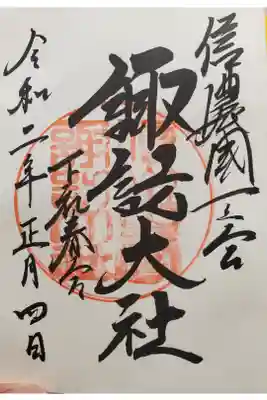 信濃國一之宮
諏訪大社
下社春宮
令和二年正月四日